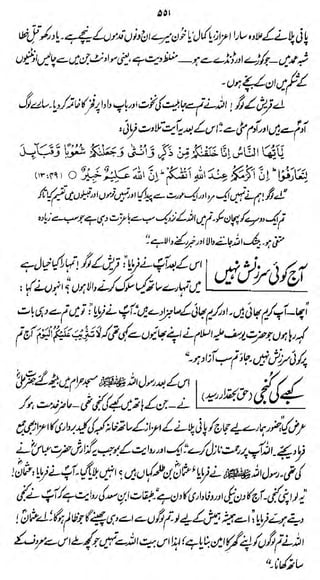 ۵۵۱
پانی پلانے کے علاوہ سارا اعزاز یا کمال یا خون میرے ان دونوں قدموں کے نیچے ہے۔ یاد رکھو قتل خطا
شبہ عمد میں — جو کوڑے اور ڈنڈے سے ہو — مغلظ دیت ہے، یعنی سو اونٹ جن میں سے چالیس اونٹنیوں
کے شکم میں ان کے بچے ہوں۔
اے قریش کے لوگو! اللہ نے تم سے جاہلیت کی نخوت اور باپ دادا پر فخر کا خاتمہ کر دیا۔ سارے لوگ
آدم سے ہیں اور آدم مٹی سے“ اس کے بعد یہ آیت تلاوت فرمائی:
يٰٓاَيُّهَا النَّاسُ اِنَّا خَلَقْنٰكُمْ مِّنْ ذَكَرٍ وَّاُنْثٰى وَجَعَلْنٰكُمْ شُعُوْبًا وَّقَبَآىِٕلَ
لِتَعَارَفُوْا ۭ اِنَّ اَكْرَمَكُمْ عِنْدَ اللّٰهِ اَتْقٰىكُمْ ۭ اِنَّ اللّٰهَ عَلِيْمٌ خَبِيْرٌ ○ (۴۹:۱۳)
”اے لوگو! ہم نے تمہیں ایک مرد اور ایک عورت سے پیدا کیا اور تمہیں قوموں اور قبیلوں میں تقسیم کیا تاکہ
تم ایک دوسرے کو پہچان سکو، تم میں اللہ کے نزدیک سب سے باعزت وہی ہے جو سب سے زیادہ
متقی ہو۔ بیشک اللہ جاننے والا اور خبر رکھنے والا ہے۔“
آج کوئی سرزنش نہیں
اس کے بعد آپؐ نے فرمایا: ”قریش کے لوگو! تمہارا کیا خیال ہے
میں تمہارے ساتھ کیسا سلوک کرنے والا ہوں؟“ انہوں نے کہا:
”اچھا۔ آپ کریم بھائی ہیں۔ اور کریم بھائی کے صاحبزادے ہیں۔“ آپؐ نے فرمایا: ”تو میں تم سے وہی بات
کہہ رہا ہوں جو حضرت یوسف علیہ السلام نے اپنے بھائیوں سے کہی تھی کہ لَا تَثْرِيْبَ عَلَيْكُمُ الْيَوْمَ آج تم
پر کوئی سرزنش نہیں، جاؤ تم سب آزاد ہو۔“
کعبے کی کنجی (حق بحقدار رسید)
اس کے بعد رسول اللہ ﷺ مسجد حرام میں بیٹھ گئے، حضرت علیؓ
نے — جن کے ہاتھ میں کعبے کی کنجی تھی — حاضر خدمت ہو کر
عرض کیا ”حضور ہمارے لیے حجاج کو پانی پلانے کے اعزاز کے ساتھ خانہ کعبہ کی کلید برداری کا اعزاز بھی جمع
فرما دیجئے۔ اللہ آپ پر رحمت نازل کرے“۔ ایک اور روایت کے بموجب یہ گذارش حضرت عباسؓ نے
کی تھی۔ رسول اللہ ﷺ نے فرمایا ”عثمانؓ بن طلحہ کہاں ہیں؟ انہیں بلایا گیا۔ آپؐ نے فرمایا: ”عثمان!
یہ لو اپنی کنجی۔ آج کا دن نیکی اور وفاداری کا دن ہے“، طبقات ابن سعد کی روایت ہے کہ آپؐ نے کنجی
دیتے ہوئے فرمایا: ”اسے ہمیشہ ہمیش کے لیے لو۔ تم لوگوں سے اسے وہی چھینے گا جو ظالم ہوگا۔ اے عثمان! اللہ
نے تم لوگوں کو اپنے گھر کا امین بنایا ہے؛ لہذا اس بیت اللہ سے تمہیں جو کچھ ملے اس سے معروف کے
ساتھ کھانا۔“